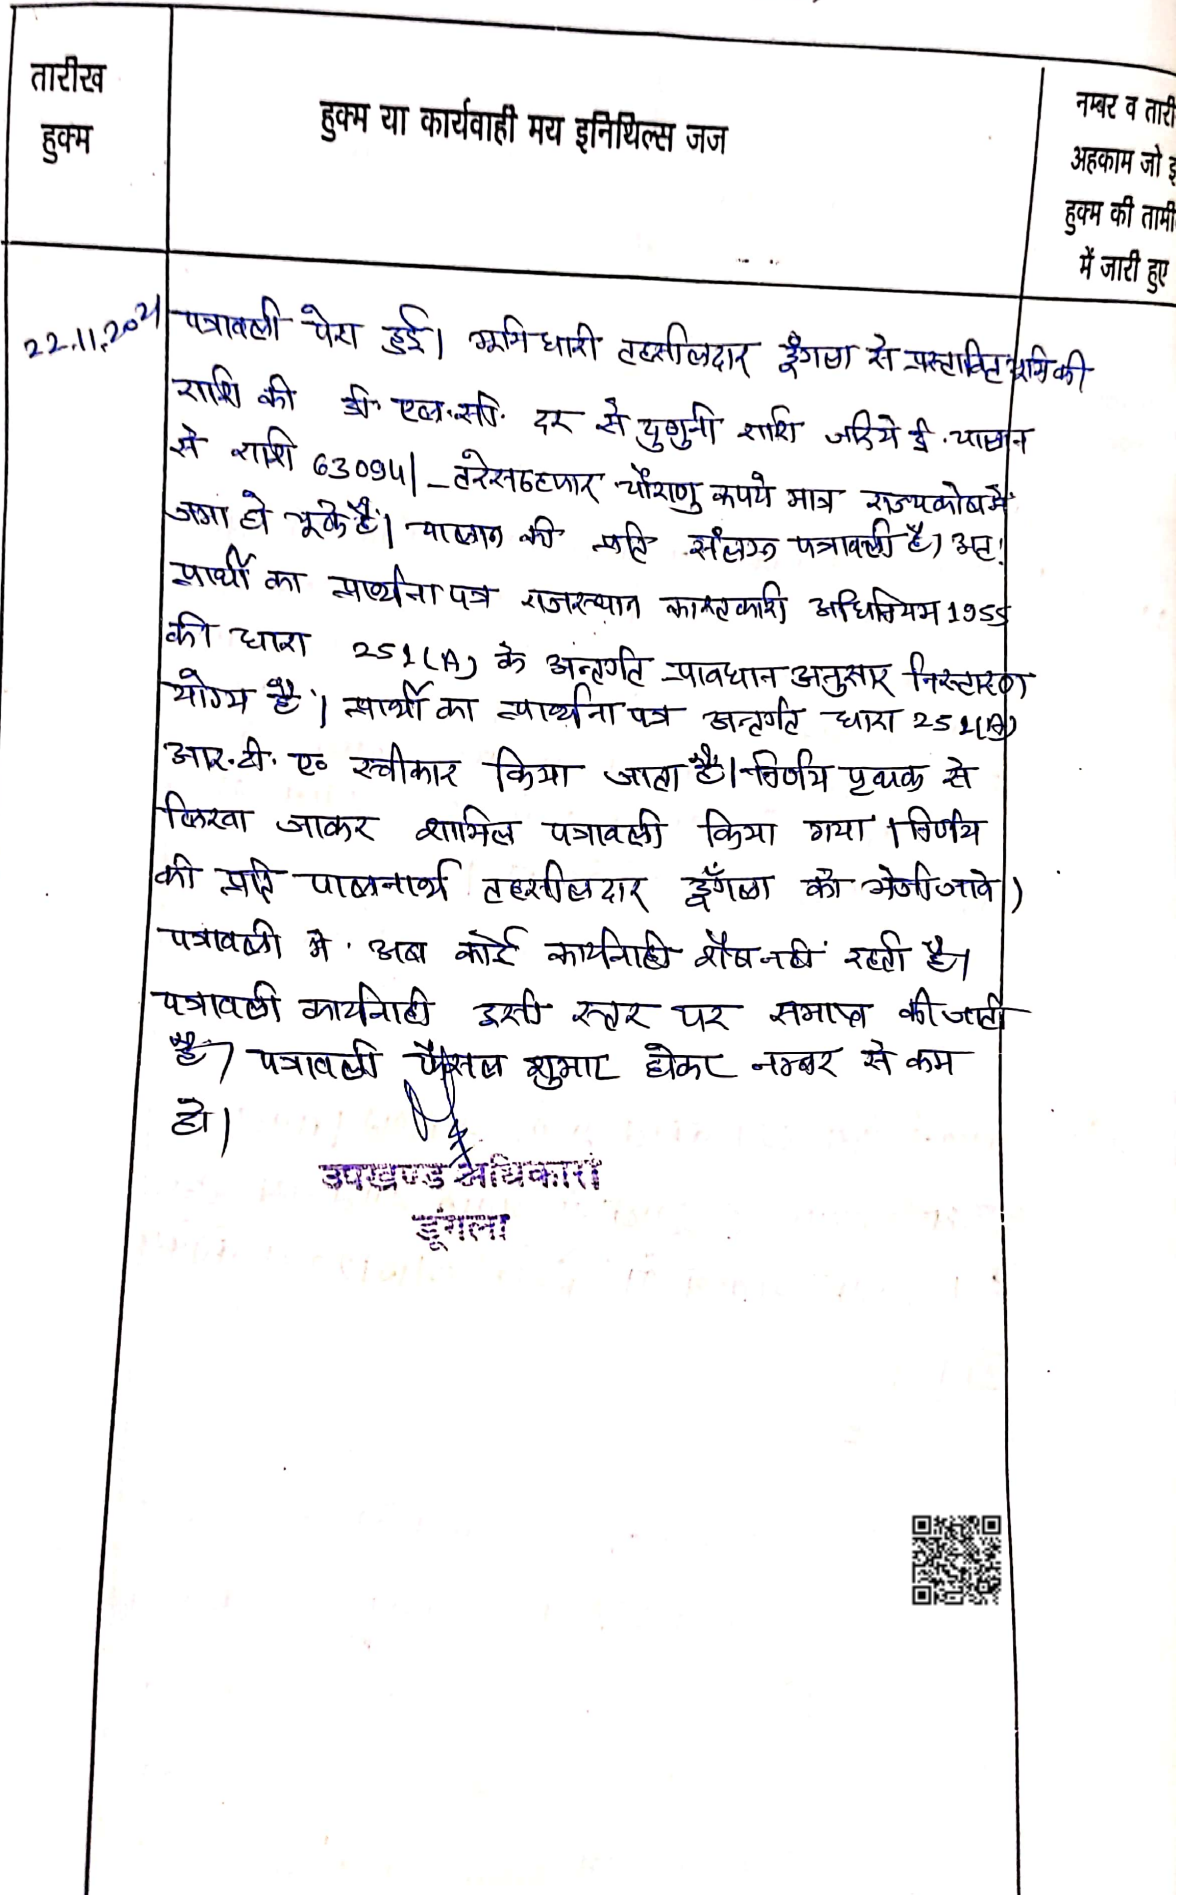 तारीख
हुक्म
हुक्म या कार्यवाही मय इनिथिल्स जज
नम्बर व तारी
अहकाम जो इ
हुक्म की तामी
में जारी हुए
22.11.2021
पत्रावली पेश हुई। भूमिधारी तहसीलदार डूँगला से प्रस्तावित भूमि की
राशि की डी.एल.सी. दर से दुगुनी राशि जरिये ई.चालान
से राशि 63094/- तरेसठहजार चौराणु रूपये मात्र राज्यकोष में
जमा हो चूके हैं। चालान की प्रति संलग्न पत्रावली है। अतः
प्रार्थी का प्रार्थना पत्र राजस्थान काश्तकारी अधिनियम 1955
की धारा 251(A) के अन्तर्गत प्रावधान अनुसार निस्तारण
योग्य है। प्रार्थी का प्रार्थना पत्र अन्तर्गत धारा 251(A)
आर.टी. ए० स्वीकार किया जाता है। निर्णय पृथक से
लिखा जाकर शामिल पत्रावली किया गया। निर्णय
की प्रति पालनार्थ तहसीलदार डूँगला को भेजी जावे।
पत्रावली मे अब कोई कार्यवाही शेष नहीं रहती है।
पत्रावली कार्यवाही इसी स्तर पर समाप्त की जाती
है। पत्रावली फैसल शुमार होकर नम्बर से कम
हो।
उपखण्ड अधिकारी
डूंगला